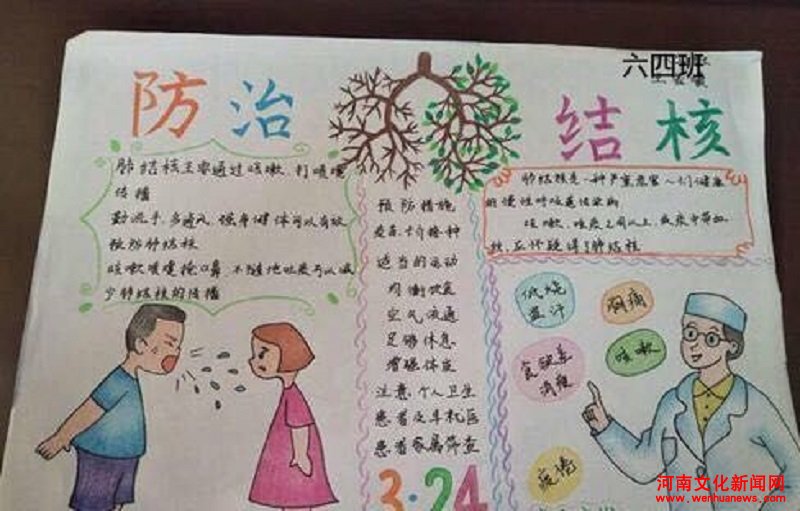 六四班
防治
结核
肺结核主要通过咳嗽、打喷嚏
传播
勤洗手、多通风、强身健体可以有效
预防肺结核
咳嗽喷嚏掩口鼻、不随地吐痰可以减
少肺结核的传播
预防措施
接种
适当的运动
均衡饮食
空气流通
足够休息
增强体质
注意个人卫生
患者及早机区
患者家属筛查
3·24
肺结核是一种严重危害人们健康
的慢性呼吸道传染病
咳嗽、咳痰2周以上，或痰中带血
丝，应怀疑得了肺结核
低烧
盗汗
胸痛
食欲差
消瘦
咳嗽
疲倦
河南文化新闻网
www.wenhuanews.com